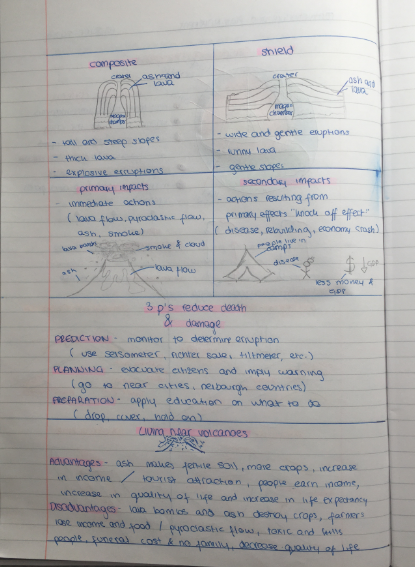 composite
crater
ash and lava
magma chamber
- tall and steep slopes
- thick lava
- explosive eruptions
shield
crater
ash and lava
magma chamber
- wide and gentle eruptions
- runny lava
- gentle slopes
primary impacts
- immediate actions
(lava flow, pyroclastic flow,
ash, smoke)
smoke & cloud
ash
lava flow
secondary impacts
- actions resulting from
primary effects "knock off effect"
(disease, rebuilding, economy crash)
people live in
camps
disease
less money &
GDP
3 p's reduce death
& damage
PREDICTION - monitor to determine eruption
(use seismometer, richter scale, tiltmeter, etc.)
PLANNING - evacuate citizens and imply warning
(go to near cities, neibourgh countries)
PREPARATION - apply education on what to do
(drop, cover, hold on)
Living near volcanoes
Advantages - ash makes fertile soil, more crops, increase
in income / tourist attraction, people earn income,
increase in quality of life and increase in life expectancy
Disadvantages - lava bombs and ash destroy crops, farmers
lose income and food / pyroclastic flow, toxic and kills
people, funeral cost & no family, decrease quality of life